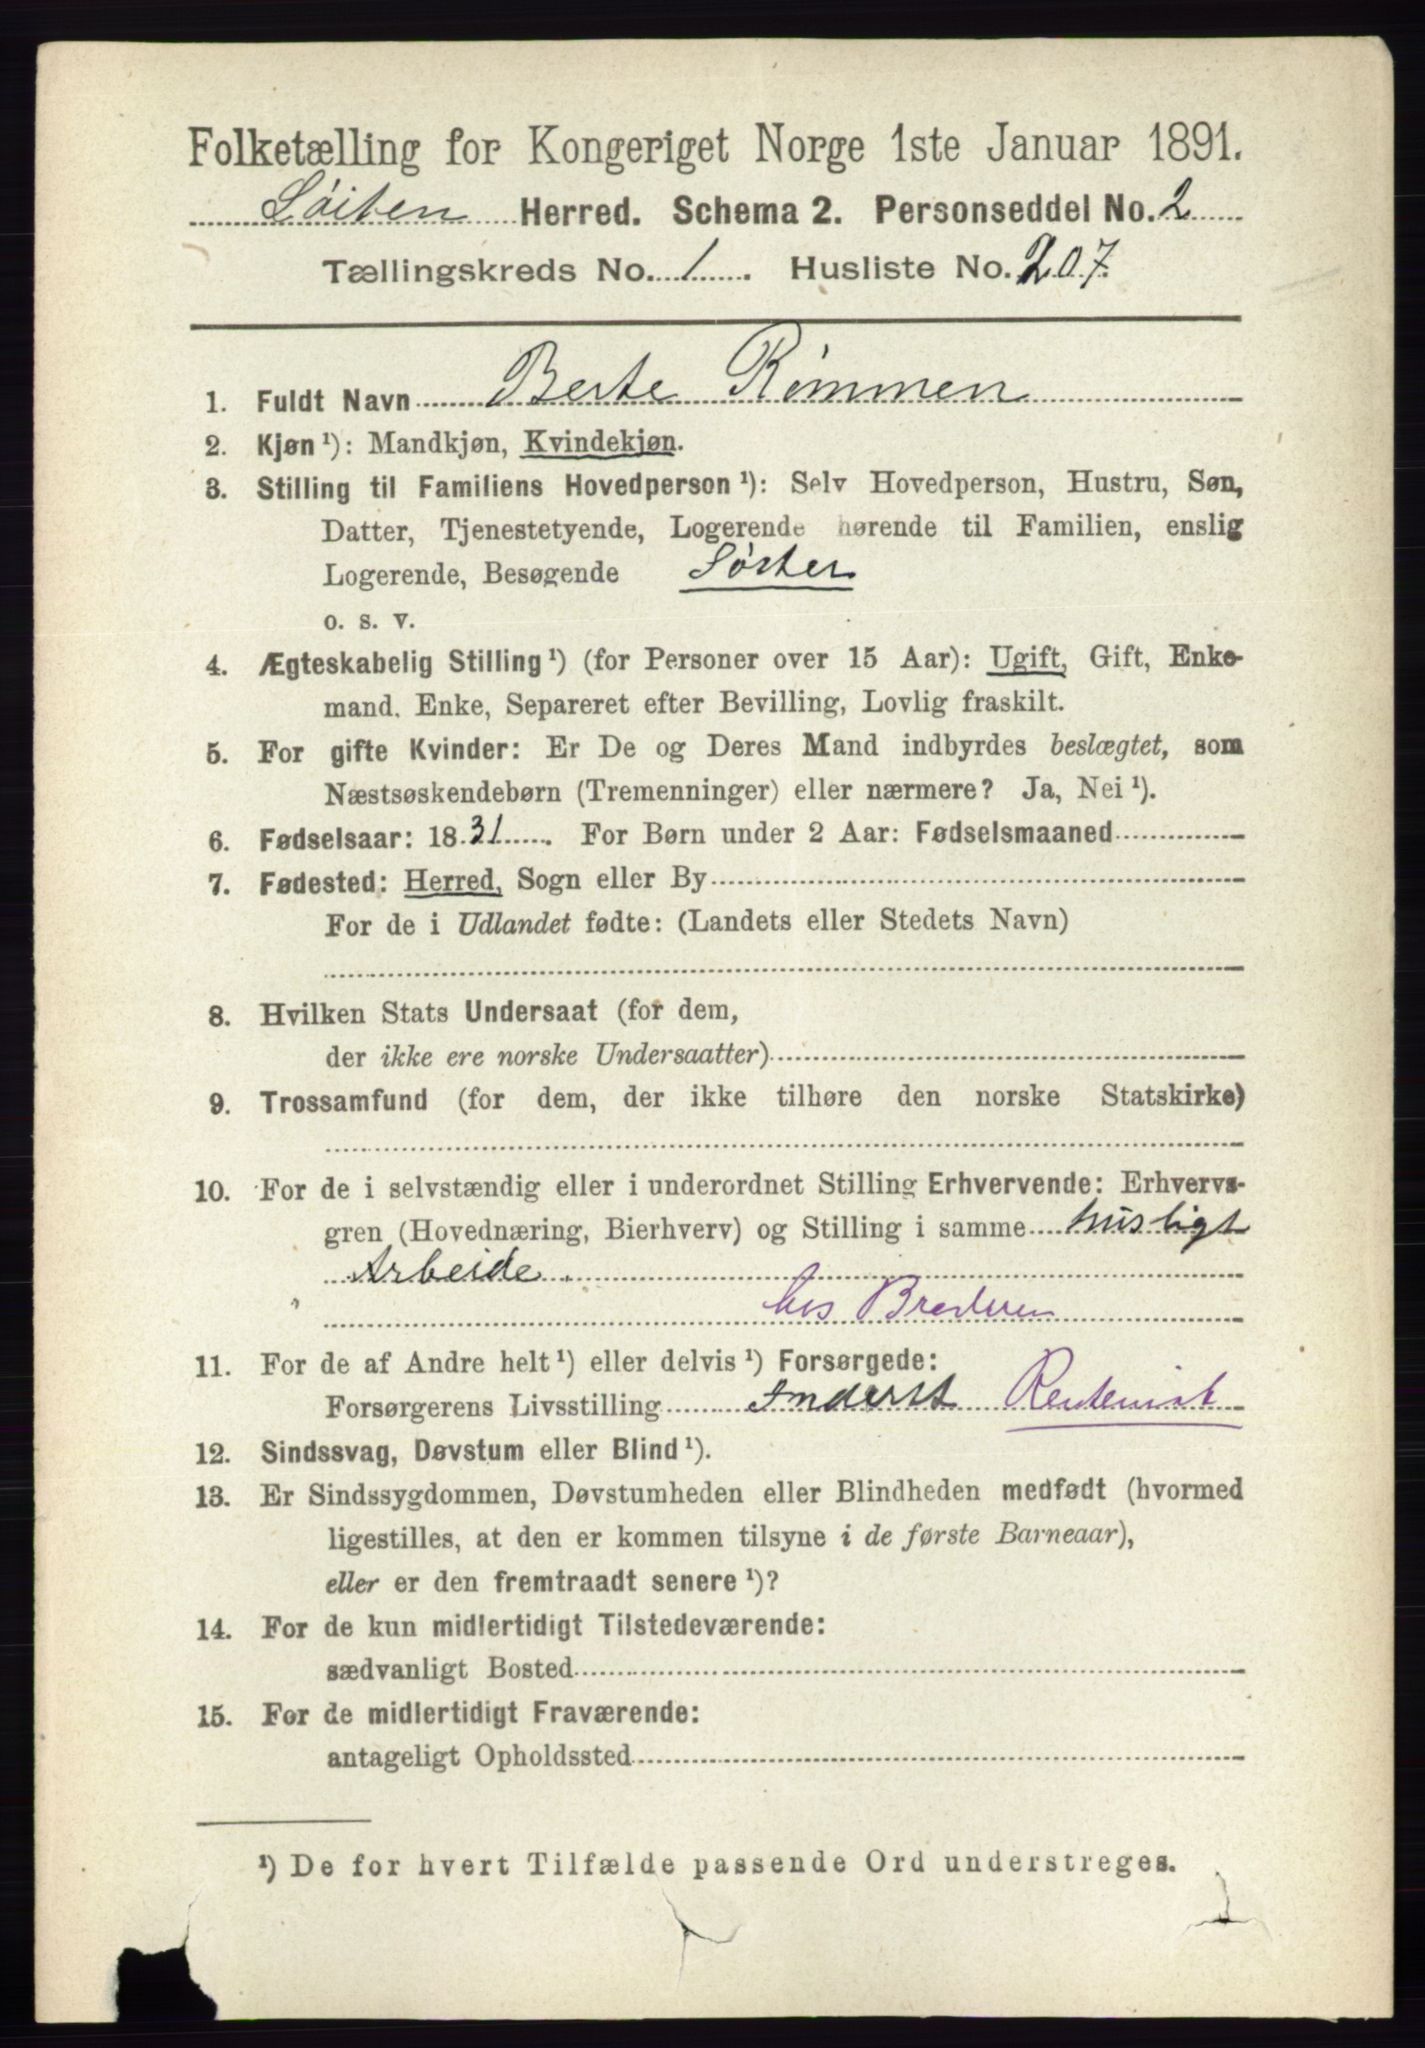 Folketælling for Kongeriget Norge 1ste Januar 1891.
Løiten Herred. Schema 2. Personseddel No. 2
Tællingskreds No. 1. Husliste No. 207.
1. Fuldt Navn Berte Rømmen
2. Kjøn ¹): Mandkjøn, Kvindekjøn.
3. Stilling til Familiens Hovedperson ¹): Selv Hovedperson, Hustru, Søn,
Datter, Tjenestetyende, Logerende hørende til Familien, enslig
Logerende, Besøgende Søster
o. s. v.
4. Ægteskabelig Stilling ¹) (for Personer over 15 Aar): Ugift, Gift, Enke-
mand. Enke, Separeret efter Bevilling, Lovlig fraskilt.
5. For gifte Kvinder: Er De og Deres Mand indbyrdes beslægtet, som
Næstsøskendebørn (Tremenninger) eller nærmere? Ja, Nei ¹).
6. Fødselsaar: 1831. For Børn under 2 Aar: Fødselsmaaned
7. Fødested: Herred, Sogn eller By
For de i Udlandet fødte: (Landets eller Stedets Navn)
8. Hvilken Stats Undersaat (for dem,
der ikke ere norske Undersaatter)
9. Trossamfund (for dem, der ikke tilhøre den norske Statskirke)
10. For de i selvstændig eller i underordnet Stilling Erhvervende: Erhvervs-
gren (Hovednæring, Bierhverv) og Stilling i samme husligt
Arbeide.
hos Broderen
11. For de af Andre helt ¹) eller delvis ¹) Forsørgede:
Forsørgerens Livsstilling Inderst Rentenist
12. Sindssvag, Døvstum eller Blind ¹).
13. Er Sindssygdommen, Døvstumheden eller Blindheden medfødt (hvormed
ligestilles, at den er kommen tilsyne i de første Barneaar),
eller er den fremtraadt senere ¹)?
14. For de kun midlertidigt Tilstedeværende:
sædvanligt Bosted
15. For de midlertidigt Fraværende:
antageligt Opholdssted
¹) De for hvert Tilfælde passende Ord understreges.